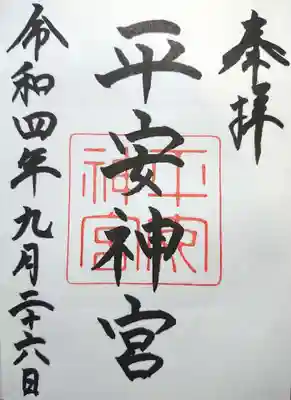 奉拝
平安神宮
平安神宮
令和四年九月二十六日